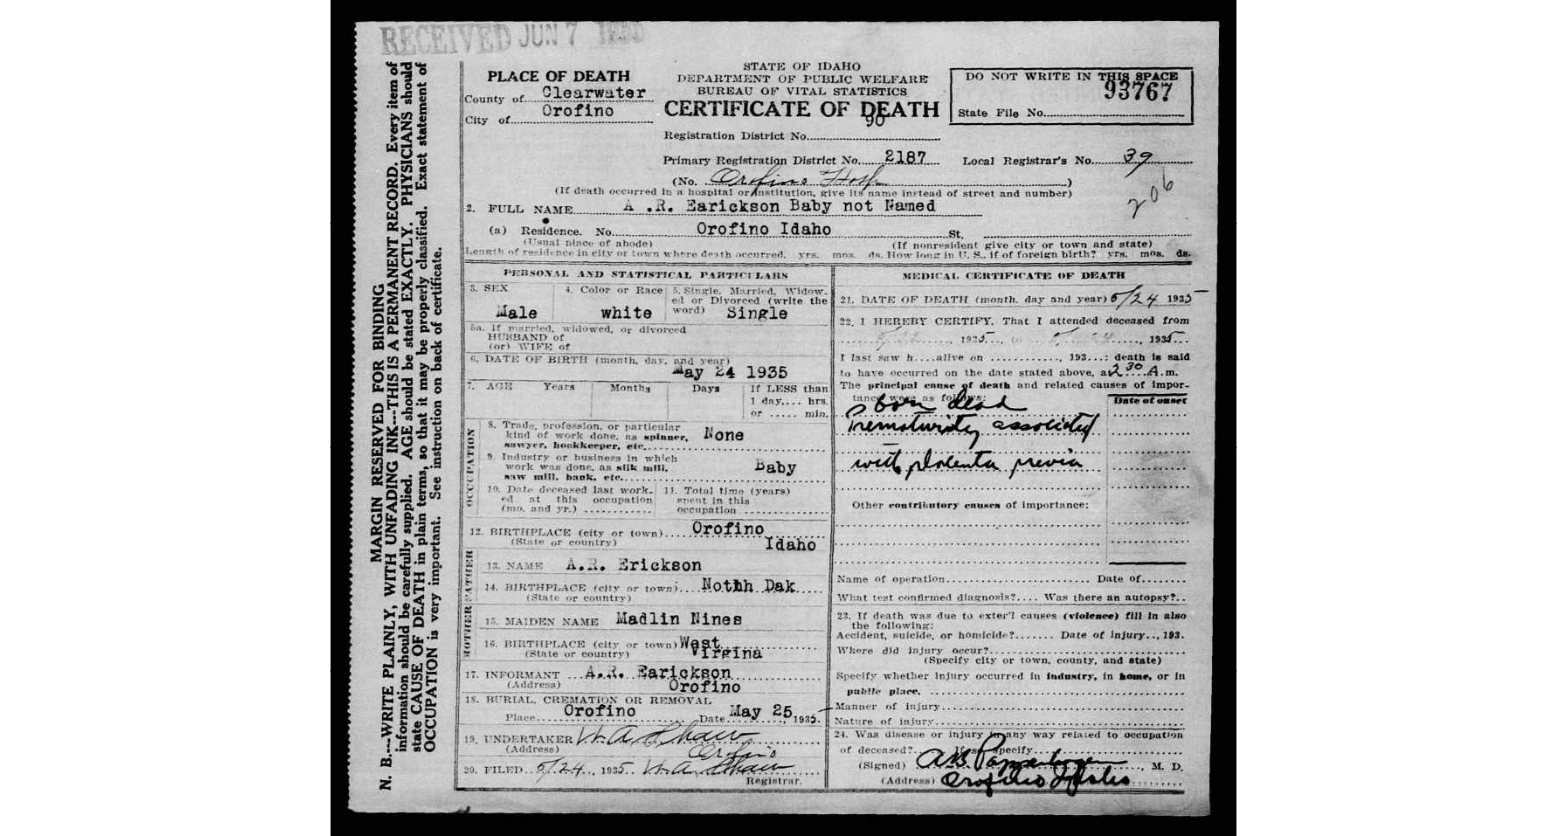 RECEIVED JUN 7 1935
MARGIN RESERVED FOR BINDING
N. B.---WRITE PLAINLY, WITH UNFADING INK---THIS IS A PERMANENT RECORD. Every item of
information should be carefully supplied. AGE should be stated EXACTLY. PHYSICIANS should
state CAUSE OF DEATH in plain terms, so that it may be properly classified. Exact statement of
OCCUPATION is very important. See instruction on back of certificate.
PLACE OF DEATH
County of Clearwater
City of Orofino
STATE OF IDAHO
DEPARTMENT OF PUBLIC WELFARE
BUREAU OF VITAL STATISTICS
CERTIFICATE OF DEATH
DO NOT WRITE IN THIS SPACE
93767
State File No.
Registration District No. 90
Primary Registration District No. 2187 Local Registrar's No. 39
206
(No. Orofino Hosp )
(If death occurred in a hospital or institution, give its name instead of street and number)
2. FULL NAME A .R. Earickson Baby not Named
(a) Residence. No. Orofino Idaho St.
(Usual place of abode) (If nonresident give city or town and state)
Length of residence in city or town where death occurred. yrs. mos. ds. How long in U. S., if of foreign birth? yrs. mos. ds.
PERSONAL AND STATISTICAL PARTICULARS
3. SEX Male
4. Color or Race white
5. Single, Married, Widow-
ed or Divorced (write the
word) Single
5a. If married, widowed, or divorced
HUSBAND of
(or) WIFE of
6. DATE OF BIRTH (month, day, and year)
May 24 1935
7. AGE Years Months Days If LESS than
1 day,.... hrs.
or ..... min.
OCCUPATION
8. Trade, profession, or particular
kind of work done, as spinner, None
sawyer, bookkeeper, etc.
9. Industry or business in which
work was done, as silk mill, Baby
saw mill, bank, etc.
10. Date deceased last work-
ed at this occupation
(mo. and yr.)
11. Total time (years)
spent in this
occupation
12. BIRTHPLACE (city or town) Orofino
(State or country) Idaho
FATHER
13. NAME A.R. Erickson
14. BIRTHPLACE (city or town) Notth Dak
(State or country)
MOTHER
15. MAIDEN NAME Madlin Nines
16. BIRTHPLACE (city or town) West
(State or country) Virgina
17. INFORMANT A.R. Earickson
(Address) Orofino
18. BURIAL, CREMATION OR REMOVAL
Place Orofino Date May 25, 1935.
19. UNDERTAKER W. A. Shaw
(Address) Orofino
20. FILED 5/24, 1935 W. A. Shaw
Registrar.
MEDICAL CERTIFICATE OF DEATH
21. DATE OF DEATH (month, day and year) 5/24 1935
22. I HEREBY CERTIFY, That I attended deceased from
5/22, 1935, to 5/24, 1935
I last saw h....alive on ............, 193...: death is said
to have occurred on the date stated above, at 2 30 A.m.
The principal cause of death and related causes of impor-
tance were as follows: Date of onset
born dead
Prematurity associated
with placenta previa
Other contributory causes of importance:
Name of operation Date of
What test confirmed diagnosis?.... Was there an autopsy?..
23. If death was due to exter'l causes (violence) fill in also
the following:
Accident, suicide, or homicide?....... Date of injury.., 193.
Where did injury occur?
(Specify city or town, county, and state)
Specify whether injury occurred in industry, in home, or in
public place.
Manner of injury
Nature of injury
24. Was disease or injury in any way related to occupation
of deceased? If so, specify
(Signed) , M. D.
(Address) Orofino Idaho